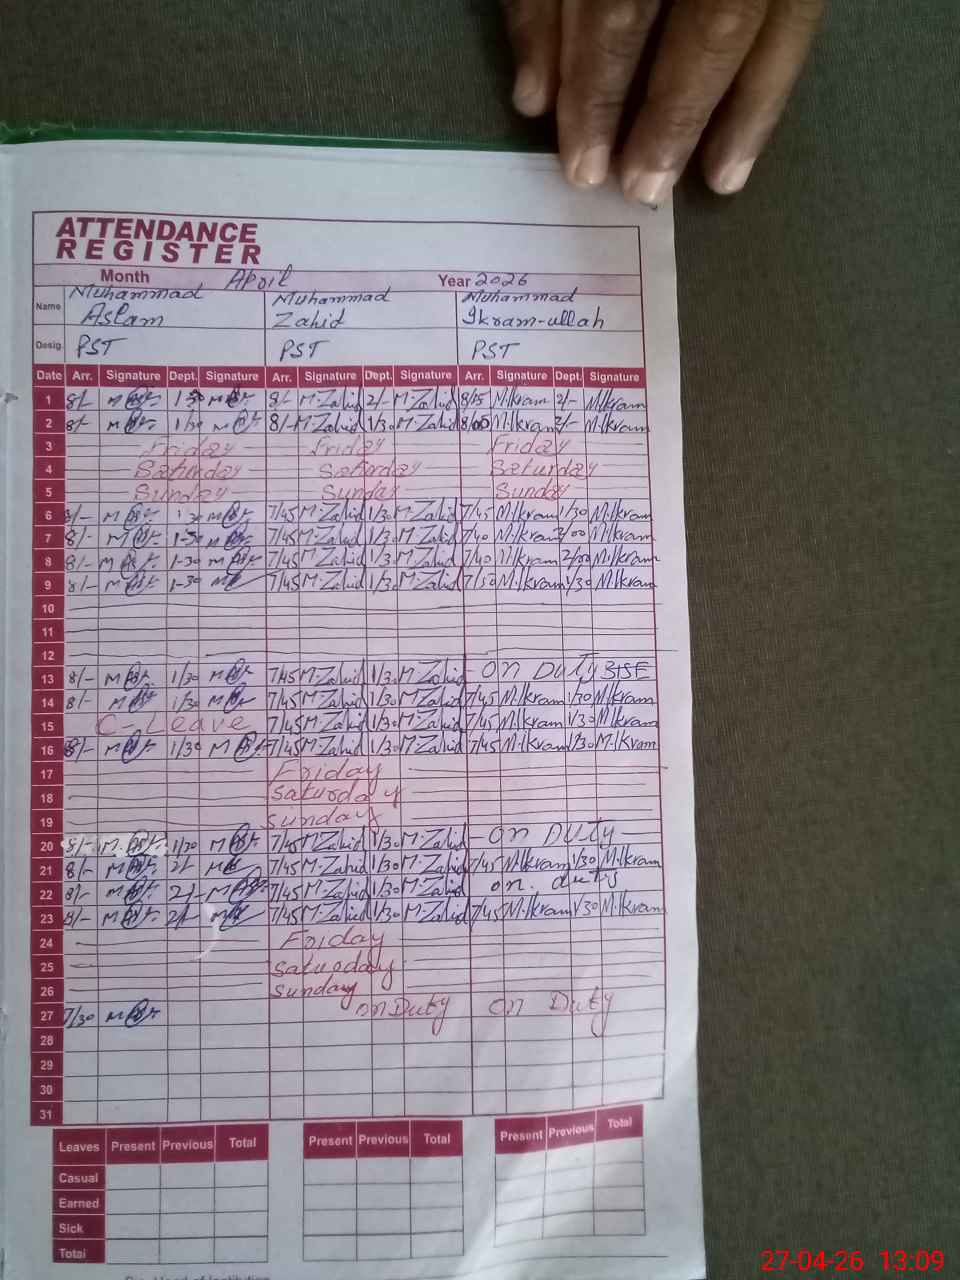 ATTENDANCE
REGISTER
Month April Year 2026
Name Muhammad Aslam Muhammad Zahid Muhammad Ikram-ullah
Desig. PST PST PST
Date Arr. Signature Dept. Signature Arr. Signature Dept. Signature Arr. Signature Dept. Signature
1 8/- 1-30 8/- M.Zahid 2/- M.Zahid 8/05 M.Ikram 2/- M.Ikram
2 8/- 1/30 8/- M.Zahid 1/30 M.Zahid 8/00 M.Ikram 2/- M.Ikram
3 Friday Friday Friday
4 Saturday Saturday Saturday
5 Sunday Sunday Sunday
6 8/- 1-30 7/45 M.Zahid 1/30 M.Zahid 7/45 M.Ikram 1/30 M.Ikram
7 8/- 1-30 7/45 M.Zahid 1/30 M.Zahid 7/40 M.Ikram 2/00 M.Ikram
8 8/- 1-30 7/45 M.Zahid 1/30 M.Zahid 7/40 M.Ikram 2/00 M.Ikram
9 8/- 1-30 7/45 M.Zahid 1/30 M.Zahid 7/50 M.Ikram 1/30 M.Ikram
10
11
12
13 8/- 1/30 7/45 M.Zahid 1/30 M.Zahid on Duty BISE
14 8/- 1/30 7/45 M.Zahid 1/30 M.Zahid 7/45 M.Ikram 1/30 M.Ikram
15 C-Leave 7/45 M.Zahid 1/30 M.Zahid 7/45 M.Ikram 1/30 M.Ikram
16 8/- 1/30 7/45 M.Zahid 1/30 M.Zahid 7/45 M.Ikram 1/30 M.Ikram
17 Friday
18 Saturday
19 Sunday
20 8/- 1/30 7/45 M.Zahid 1/30 M.Zahid on Duty
21 8/- 2/- 7/45 M.Zahid 1/30 M.Zahid 7/45 M.Ikram 1/30 M.Ikram
22 8/- 2/- 7/45 M.Zahid 1/30 M.Zahid on. duty
23 8/- 2/- 7/45 M.Zahid 1/30 M.Zahid 7/45 M.Ikram 1/30 M.Ikram
24 Friday
25 Saturday
26 Sunday
27 7/30 on Duty on Duty
28
29
30
31
Leaves Present Previous Total Present Previous Total Present Previous Total
Casual
Earned
Sick
Total
27-04-26 13:09